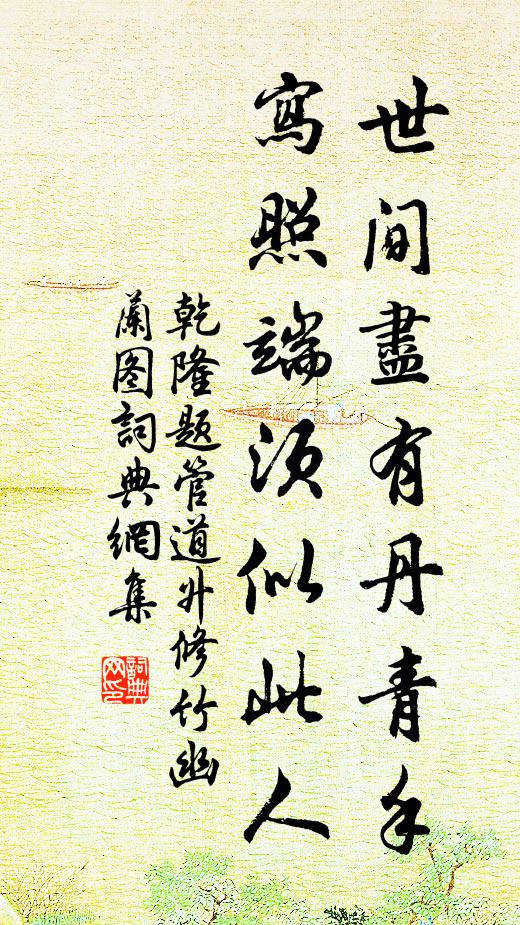 世間盡有丹青手
寫照端須似此人
乾隆題管道升修竹幽
蘭图詞典網集
詞典网印